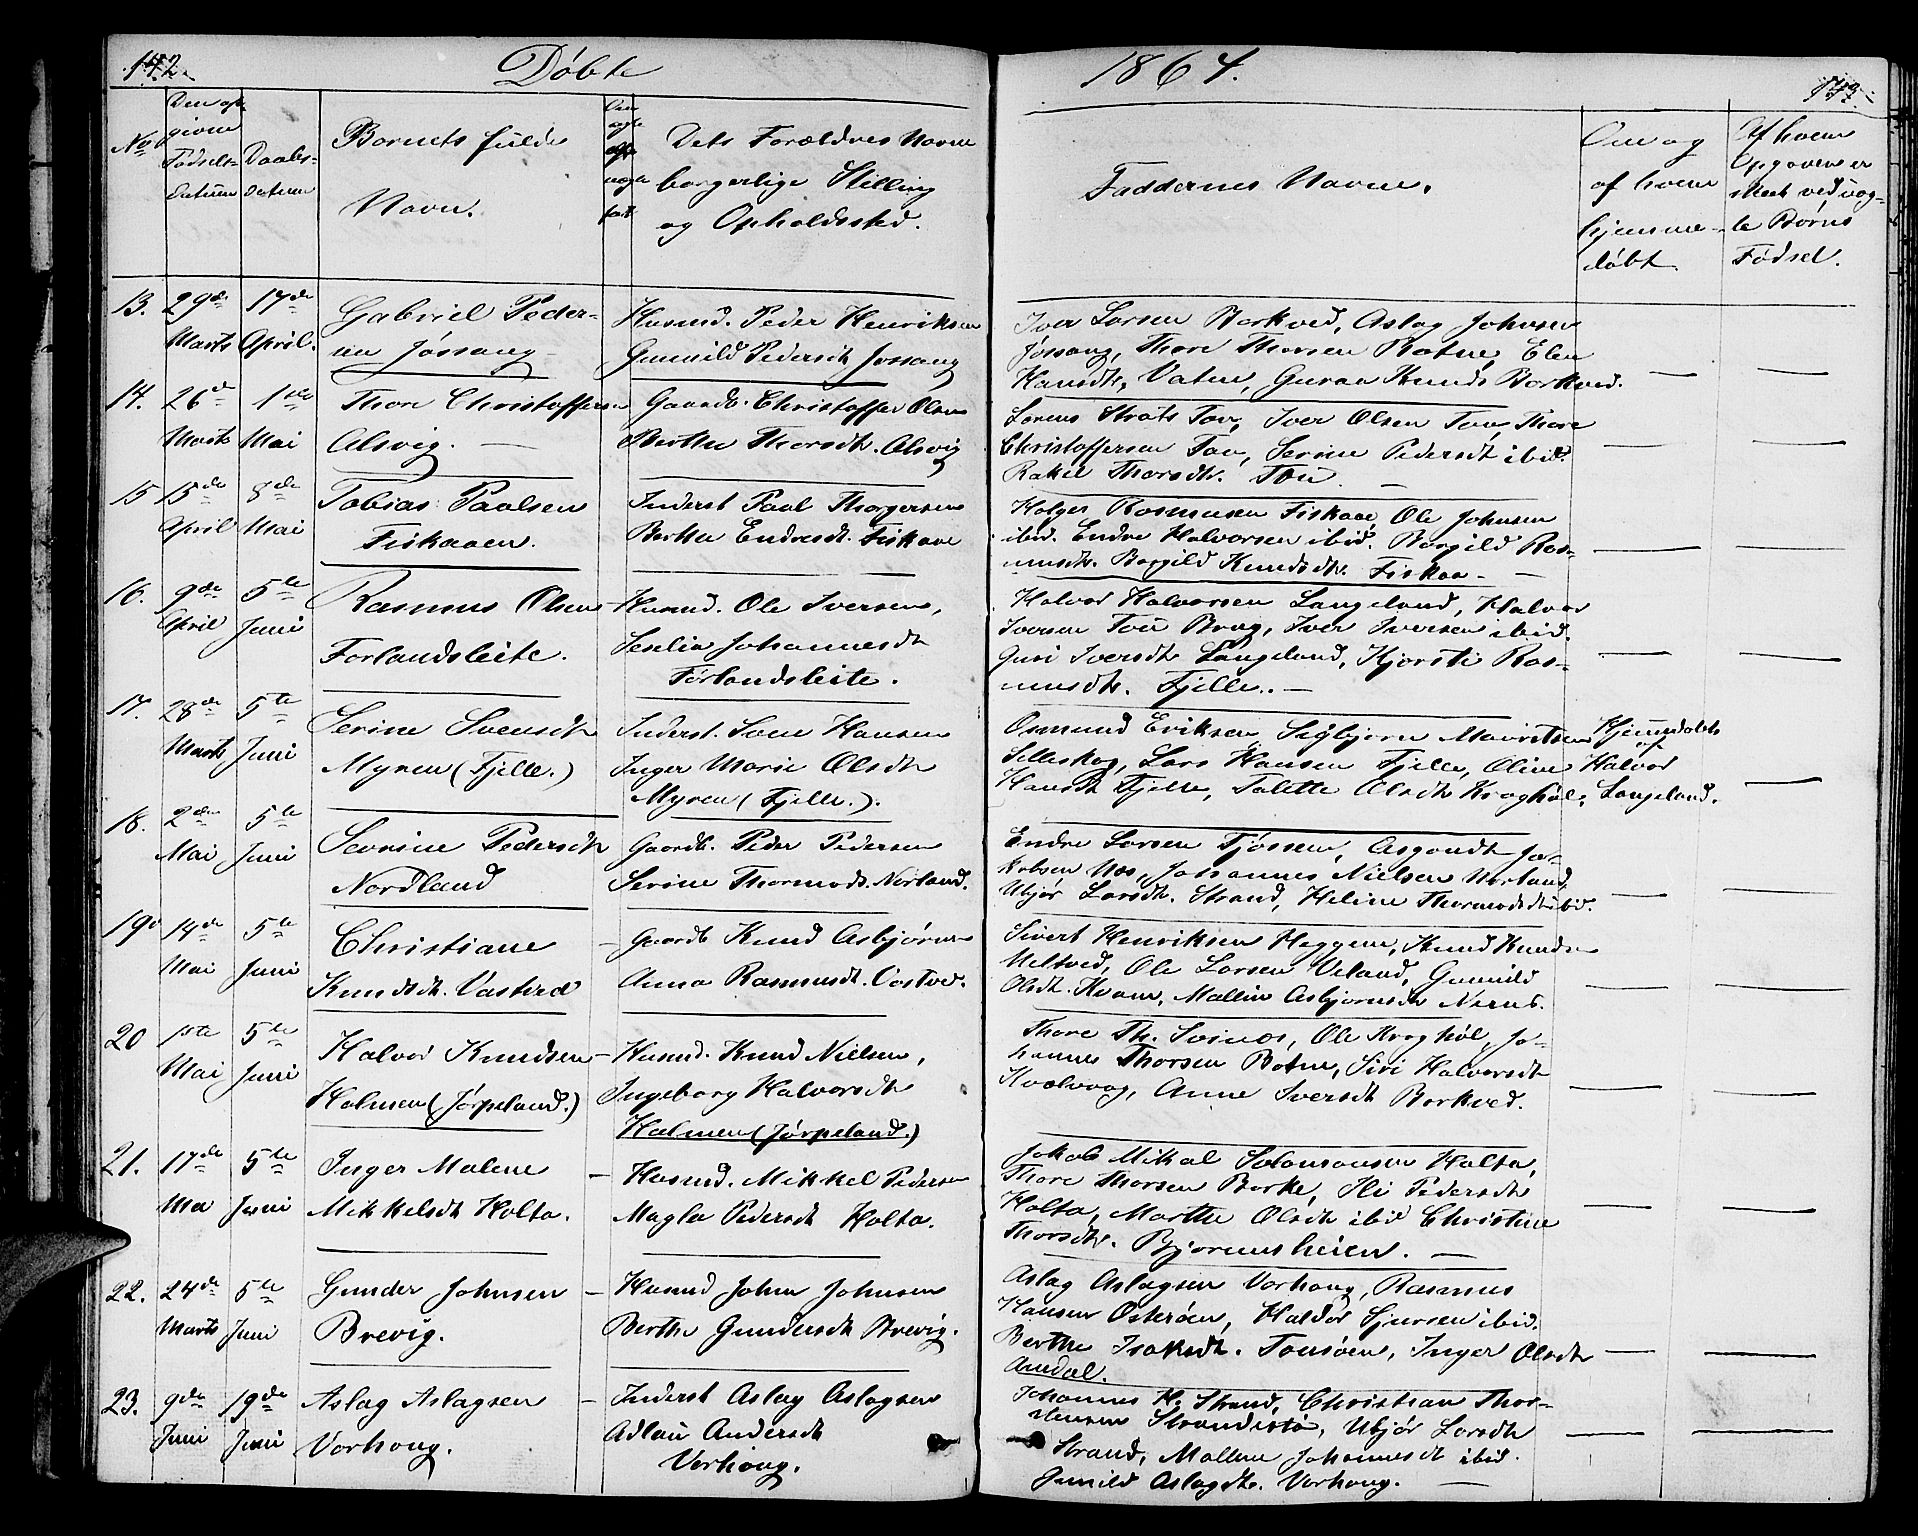 142.
Døbte
1864.
143.
No
Den op-
givne
Fødsels-
datum
Daabs-
datum
Barnets fulde
Navn.
Om
ægte
eller
uægte
født
Dets Forældres Navne
borgerlige Stilling
og Opholdssted.
Faddernes Navne.
Om og
af hvem
hjemme-
døbt
Af hvem
Opgaven er
skeet ved uæg-
te Børns
Fødsel.
13. 29de Marts 17de April.
Gabriel Peder-
sen Jøssang
Husmd. Peder Henriksen
Gunnild Pedersdt Jøssang
Iver Larsen Barkved, Aslag Johnsen
Jøssang, Thore Thorsen Botne, Elen
Hansdt., Vatne, Guroe Knuds Barkved.
14. 26de Marts 1ste Mai
Thore Christoffersen
Alsvig.
Gaardb. Christoffer Olsen
Berthe Thorsdt. Alsvig
Lorens Strats Tou, Iver Olsen Tou, Thore
Christoffersen Tou, Serine Pedersdt ibid.
Rakel Thorsdt. Tou
15 15de April 8de Mai
Tobias Paalsen
Fiskaaen.
Inderst Paal Thorgersen
Berthe Endresdt. Fiskaae
Holger Rasmusen Fiskaae, Ole Johnsen
ibid. Endre Halvorsen ibid. Borgild Ras-
musdt. Borgild Knudsdt. Fiskaa
16. 9de April 5te Juni
Rasmus Olsen
Førlandsleite.
Husmd. Ole Iversen,
Seselia Johannesdt
Førlandsleite.
Halvor Halvorsen Langeland, Halvor
Iversen Tou Brug, Iver Iversen ibid.
Guri Iversdt Langeland, Kjersti Ras-
musdt. Fjelle.
17. 28de Marts 5te Juni
Serine Svensdt
Myren (Fjelle.)
Inderst. Sven Hansen
Inger Marie Olsdt
Myren (Fjelle.).
Osmund Eriksen, Sigbjørn Mauritsen
Selleskog, Lars Hansen Fjelle, Oline
Hansdt Fjelle, Talette Olsdt Kroghøl.
Hjemmedøbt
af
Halvor
Langeland.
18. 2den Mai 5te Juni
Severine Pedersdt
Nordland
Gaardb. Peder Pedersen
Serine Thormods. Norland.
Endre Larsen Tjøssem, Asgaudt Ja-
kobsen Næs, Johannes Nielsen Norland
Ubjør Larsdt. Strand, Heline Thormodsdt ibid.
19 14de Mai 5te Juni
Christiane
Knudsdt. Vastved
Gaardb Knud Asbjørnsen
Anna Rasmusdt. Vastved.
Sivert Henriksen Heggem, Knud Knudsen
Meltved, Ole Larsen Veland, Gunnild
Olsdt. Kvam, Malline Asbjørnsdt
20 1ste Mai 5te Juni
Halvor Knudsen
Holmen (Jørpeland.)
Husmd. Knud Nielsen,
Ingeborg Halvorsdt
Holmen (Jørpeland.)
Thore Th. Svinæs, Ole Kroghøl, Jo-
hannes Thorsen Botne, Siri Halvorsdt
Kvalvaag, Anne Iversdt Barkved.
21. 17de Mai 5te Juni
Inger Malene
Mikkelsdt Holta.
Husmd. Mikkel Pedersen
Magla Pedersdt Holta.
Jakob Mikal Salomonsen Holta,
Thore Thorsen Barke, Ili Pedersdt
Holta, Marthe Olsdt ibid Christine
Thorsdt. Bjørnusheien.
22. 24de Marts 5te Juni
Gunder Johnsen
Brevig.
Husmd John Johnsen
Berthe Gundersdt Brevig.
Aslag Aslagsen Vorhoug, Rasmus
Hansen Osterøen, Haldor Sjursen ibid.
Berthe Isaksdt. Tousøen, Inger Olsdt
Amdal.
23. 9de Juni 19de Juni
Aslag Aslagsen
Vorhoug.
Inderst Aslag Aslagsen
Adlau Andersdt
Vorhoug.
Johannes H. Strand, Christian Thor-
stensen Strandestø, Ubjør Larsdt
Strand, Mallene Johannesdt ibid.
Gunild Aslagdt. Vorhoug.